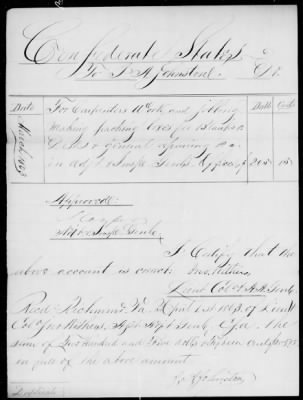 Confederate States
To P. A. Johnston Dr.
Date Dolls Cents
March 1863 For Carpenters Work and fitting
making packing boxes for Blanks
Desks & general repairing &c
in Adj & Insp Genls Office 205 15
Approved:
S. Cooper
Adj & Insp Genl.
I Certify that the
above account is correct: Jno. Withers
Lieut Col & A. A. Genl.
Recd Richmond Va. April 1st 1863, of Lieut
Col Jno Withers, Asst Adjt Genl C.S.A. the
sum of Two Hundred and Five dolls Fifteen cents
in full of the above amount.
P. A. Johnston
Duplicate